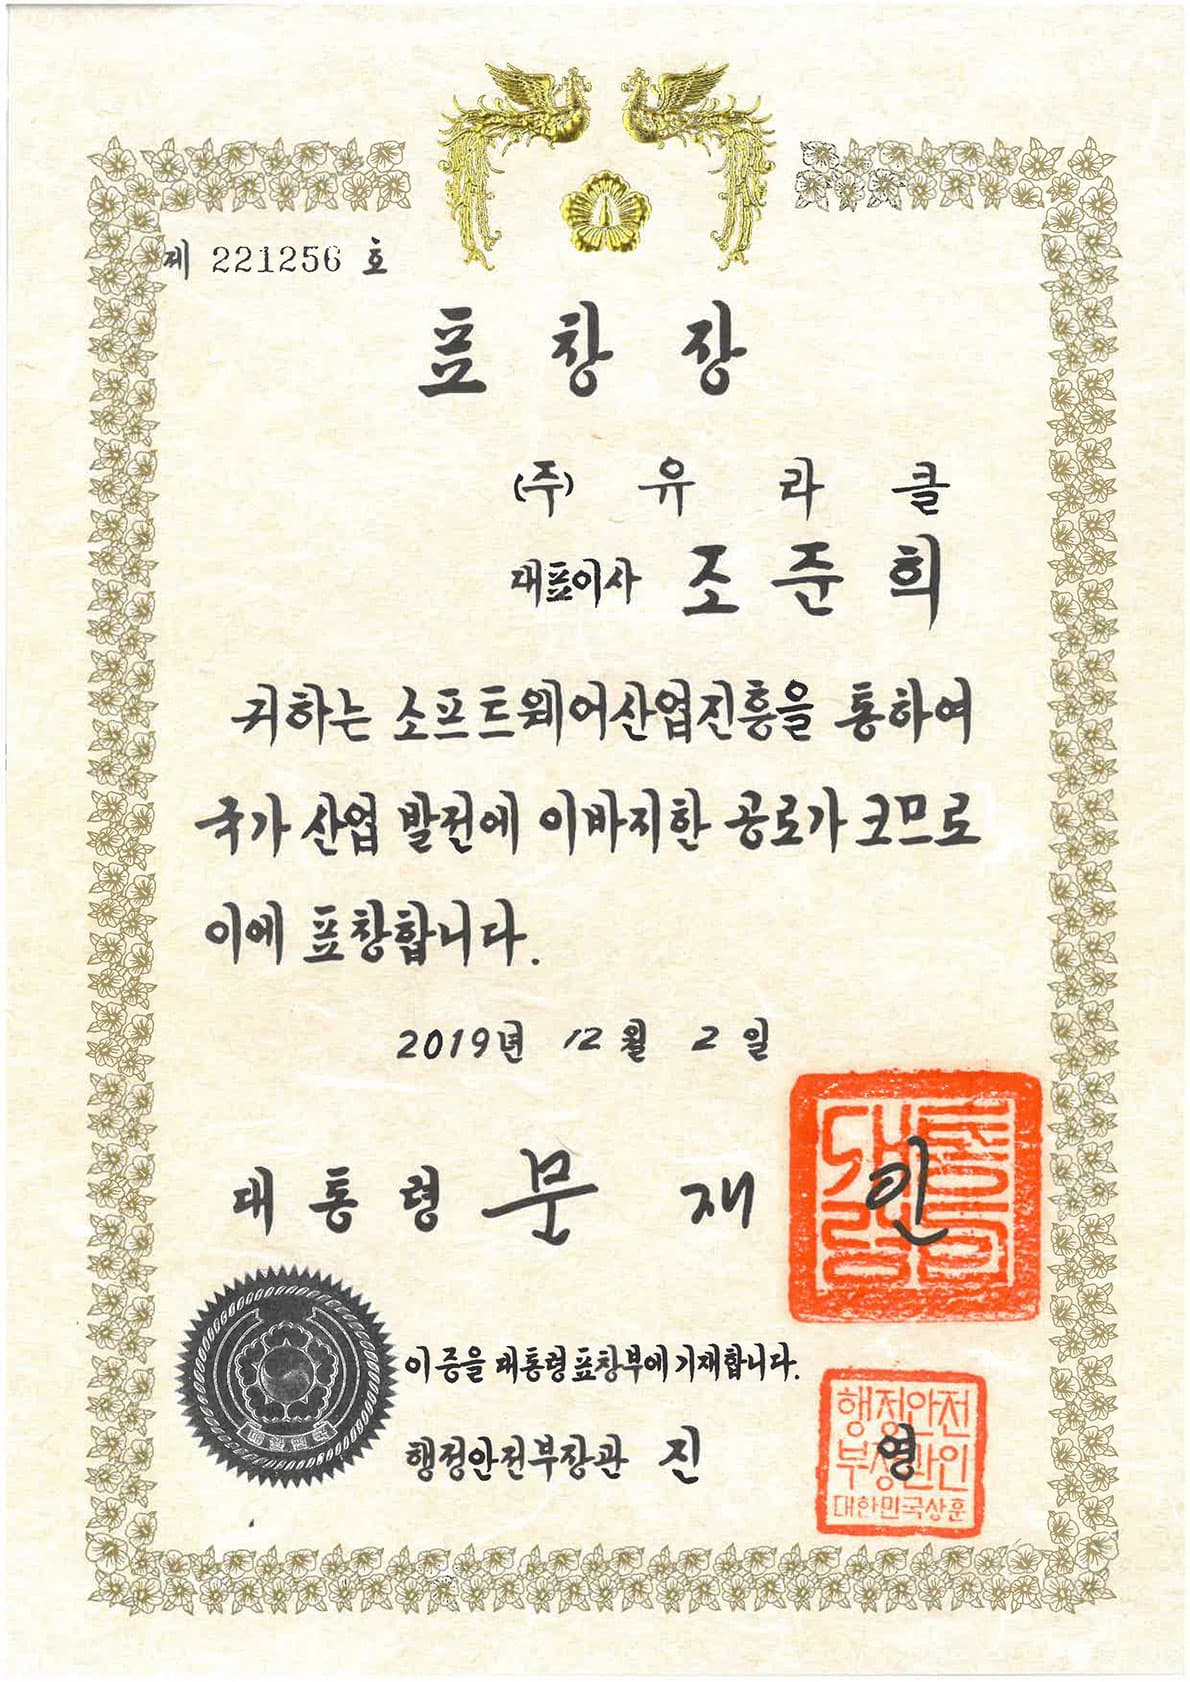 제 221256 호
표창장
(주) 유라클
대표이사 조준희
귀하는 소프트웨어산업진흥을 통하여
국가 산업 발전에 이바지한 공로가 크므로
이에 표창합니다.
2019년 12월 2일
대통령 문재인
이 증을 대통령표창부에 기재합니다.
행정안전부장관 진영
행정안전
부장관인
대한민국상훈